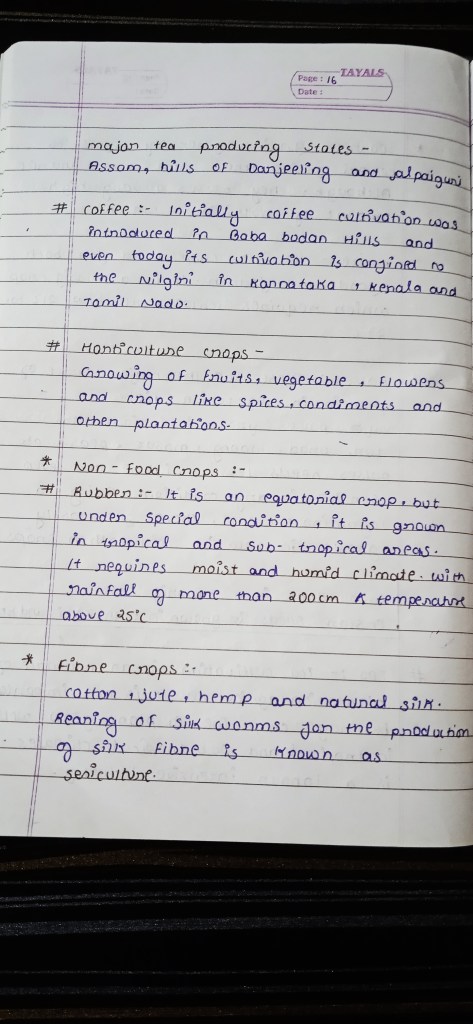 TAYALS
Page : 16
Date :
major tea producing states -
Assam, hills of Darjeeling and Jalpaiguri
# Coffee :- Initially coffee cultivation was
introduced in Baba budan Hills and
even today its cultivation is confined to
the Nilgiri in Karnataka , Kerala and
Tamil Nadu.
# Horticulture crops -
Growing of fruits, vegetable , flowers
and crops like spices, condiments and
other plantations.
* Non - food crops :-
# Rubber :- It is an equatorial crop, but
under special condition , it is grown
in tropical and sub- tropical areas.
It requires moist and humid climate. with
rainfall of more than 200cm & temperature
above 25°c
* Fibre crops :-
cotton , jute , hemp and natural silk.
Rearing of silk worms for the production
of silk fibre is known as
sericulture.